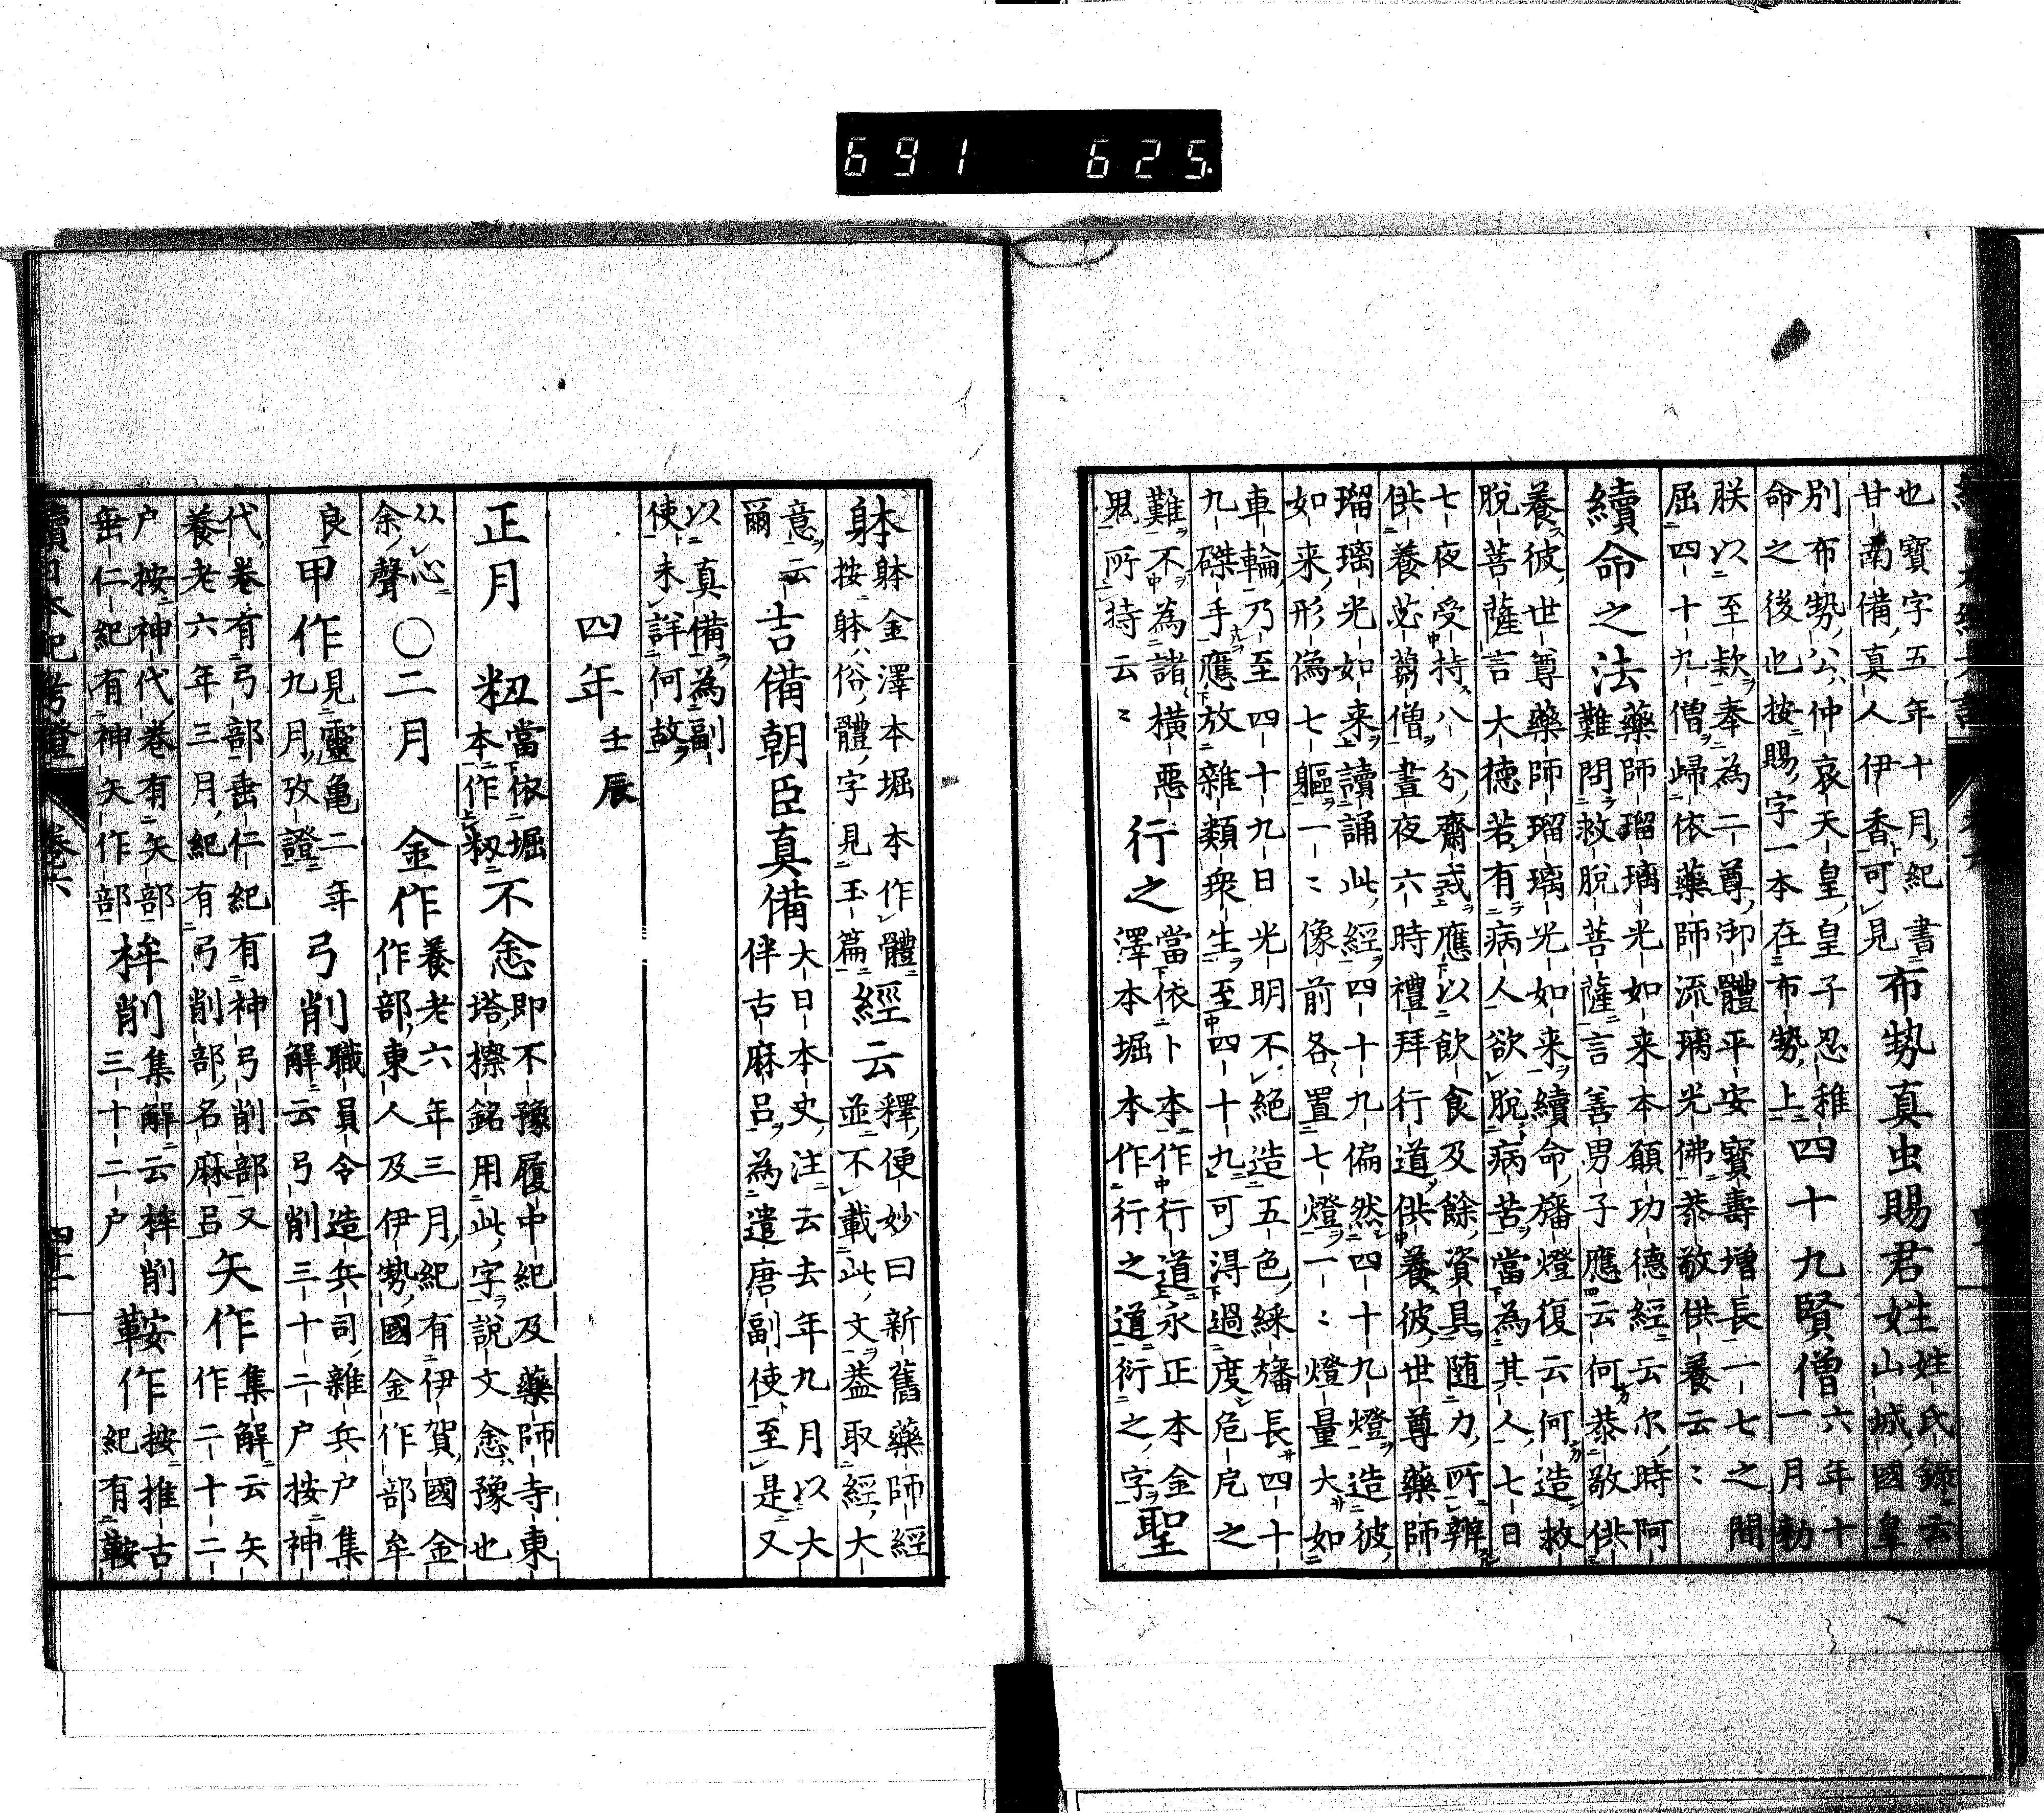 691 625
也寶字五年十月紀書
甘南備真人伊香可見
布㔟真虫賜君姓
姓氏錄云
山城國皇
別布㔟公仲哀天皇皇子忍稚
命之後也按賜字一本在布㔟上
四十九賢僧
六年十
一月勅
朕以至款奉為二尊御體平安寶壽増長一七之間
屈四十九僧歸依藥師流璃光佛恭敬供養云〻
續命之法
藥師瑠璃光如来本願功德經云尓時阿
難問救脫菩薩言善男子應云何恭敬供
養彼世尊藥師瑠璃光如来續命旛燈復云何造救
脫菩薩言大德若有病人欲脫病苦當為其人七日
七夜受持八分齋戒應以飲食及餘資具随力所辨
供養苾蒭僧晝夜六時禮拜行道供養彼世尊藥師
瑠璃光如来讀誦此經四十九徧然四十九燈造彼
如来形像七軀一〻像前各置七燈一〻燈量大如
車輪乃至四十九日光明不絕造五色綵旛長四十
九磔手應放雜類衆生至四十九可得過度危厄之
難不為諸横惡
鬼所持云〻
行之
當依卜本作行道永正本金
澤本堀本作行之道衍之字
聖
躰
躰金澤本堀本作體
按躰俗體字見玉篇
經云
釋便妙曰新舊藥師經
並不載此文葢取經大
意云
爾
吉備朝臣真備
大日本史注云去年九月以大
伴古麻呂為遣唐副使至是又
以真備為副
使未詳何故
四年壬辰
正月
籾
當依堀
本作籾
不悆
即不豫履中紀及藥師寺東
塔擦銘用此字說文悆豫也
从心
余聲
〇二月
金作
養老六年三月紀有伊賀國金
作部東人及伊㔟國金作部牟
良
甲作
見靈亀二年
九月攷證
弓削
職員令造兵司雜兵户集
解云弓削三十二户按神
代卷有弓部垂仁紀有神弓削部又
養老六年三月紀有弓削部名麻呂
矢作
集解云矢
作二十二
户按神代卷有矢部
垂仁紀有神矢作部
桙削
集解云桙削
三十二户
鞍作
按推古
紀有鞍
續日本紀考證
卷六
四十一